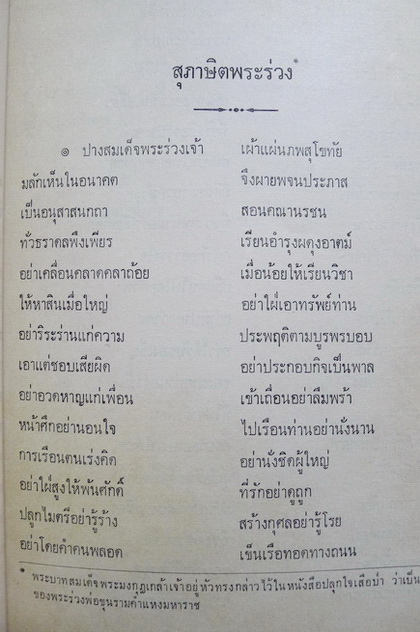 สุภาษิตพระร่วง*
๏ ปางสมเด็จพระร่วงเจ้า เผ้าแผ่นภพสุโขทัย
มลักเห็นในอนาคต จึงผายพจนประภาส
เป็นอนุสาสนกถา สอนคณานรชน
ทั่วธราดลพึงเพียร เรียนอำรุงผดุงอาตม์
อย่าเคลื่อนคลาดคลาถ้อย เมื่อน้อยให้เรียนวิชา
ให้หาสินเมื่อใหญ่ อย่าใฝ่เอาทรัพย์ท่าน
อย่าริระร่านแก่ความ ประพฤติตามบูรพรบอบ
เอาแต่ชอบเสียผิด อย่าประกอบกิจเป็นพาล
อย่าอวดหาญแก่เพื่อน เข้าเถื่อนอย่าลืมพร้า
หน้าศึกอย่านอนใจ ไปเรือนท่านอย่านั่งนาน
การเรือนตนเร่งคิด อย่านั่งชิดผู้ใหญ่
อย่าใฝ่สูงให้พ้นศักดิ์ ที่รักอย่าดูถูก
ปลูกไมตรีอย่ารู้ร้าง สร้างกุศลอย่ารู้โรย
อย่าโดยคำคนพลอด เข็นเรือทอดทางถนน
* พระบาทสมเด็จพระมงกุฎเกล้าเจ้าอยู่หัวทรงกล่าวไว้ในหนังสือปลุกใจเสือป่า ว่าเป็น
ของพระร่วงพ่อขุนรามคำแหงมหาราช